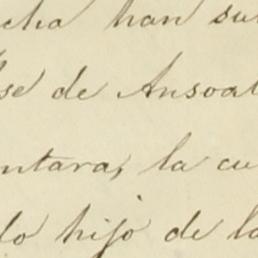 cha han su
se de Ansoat
ntara, la cu
do hijo de la